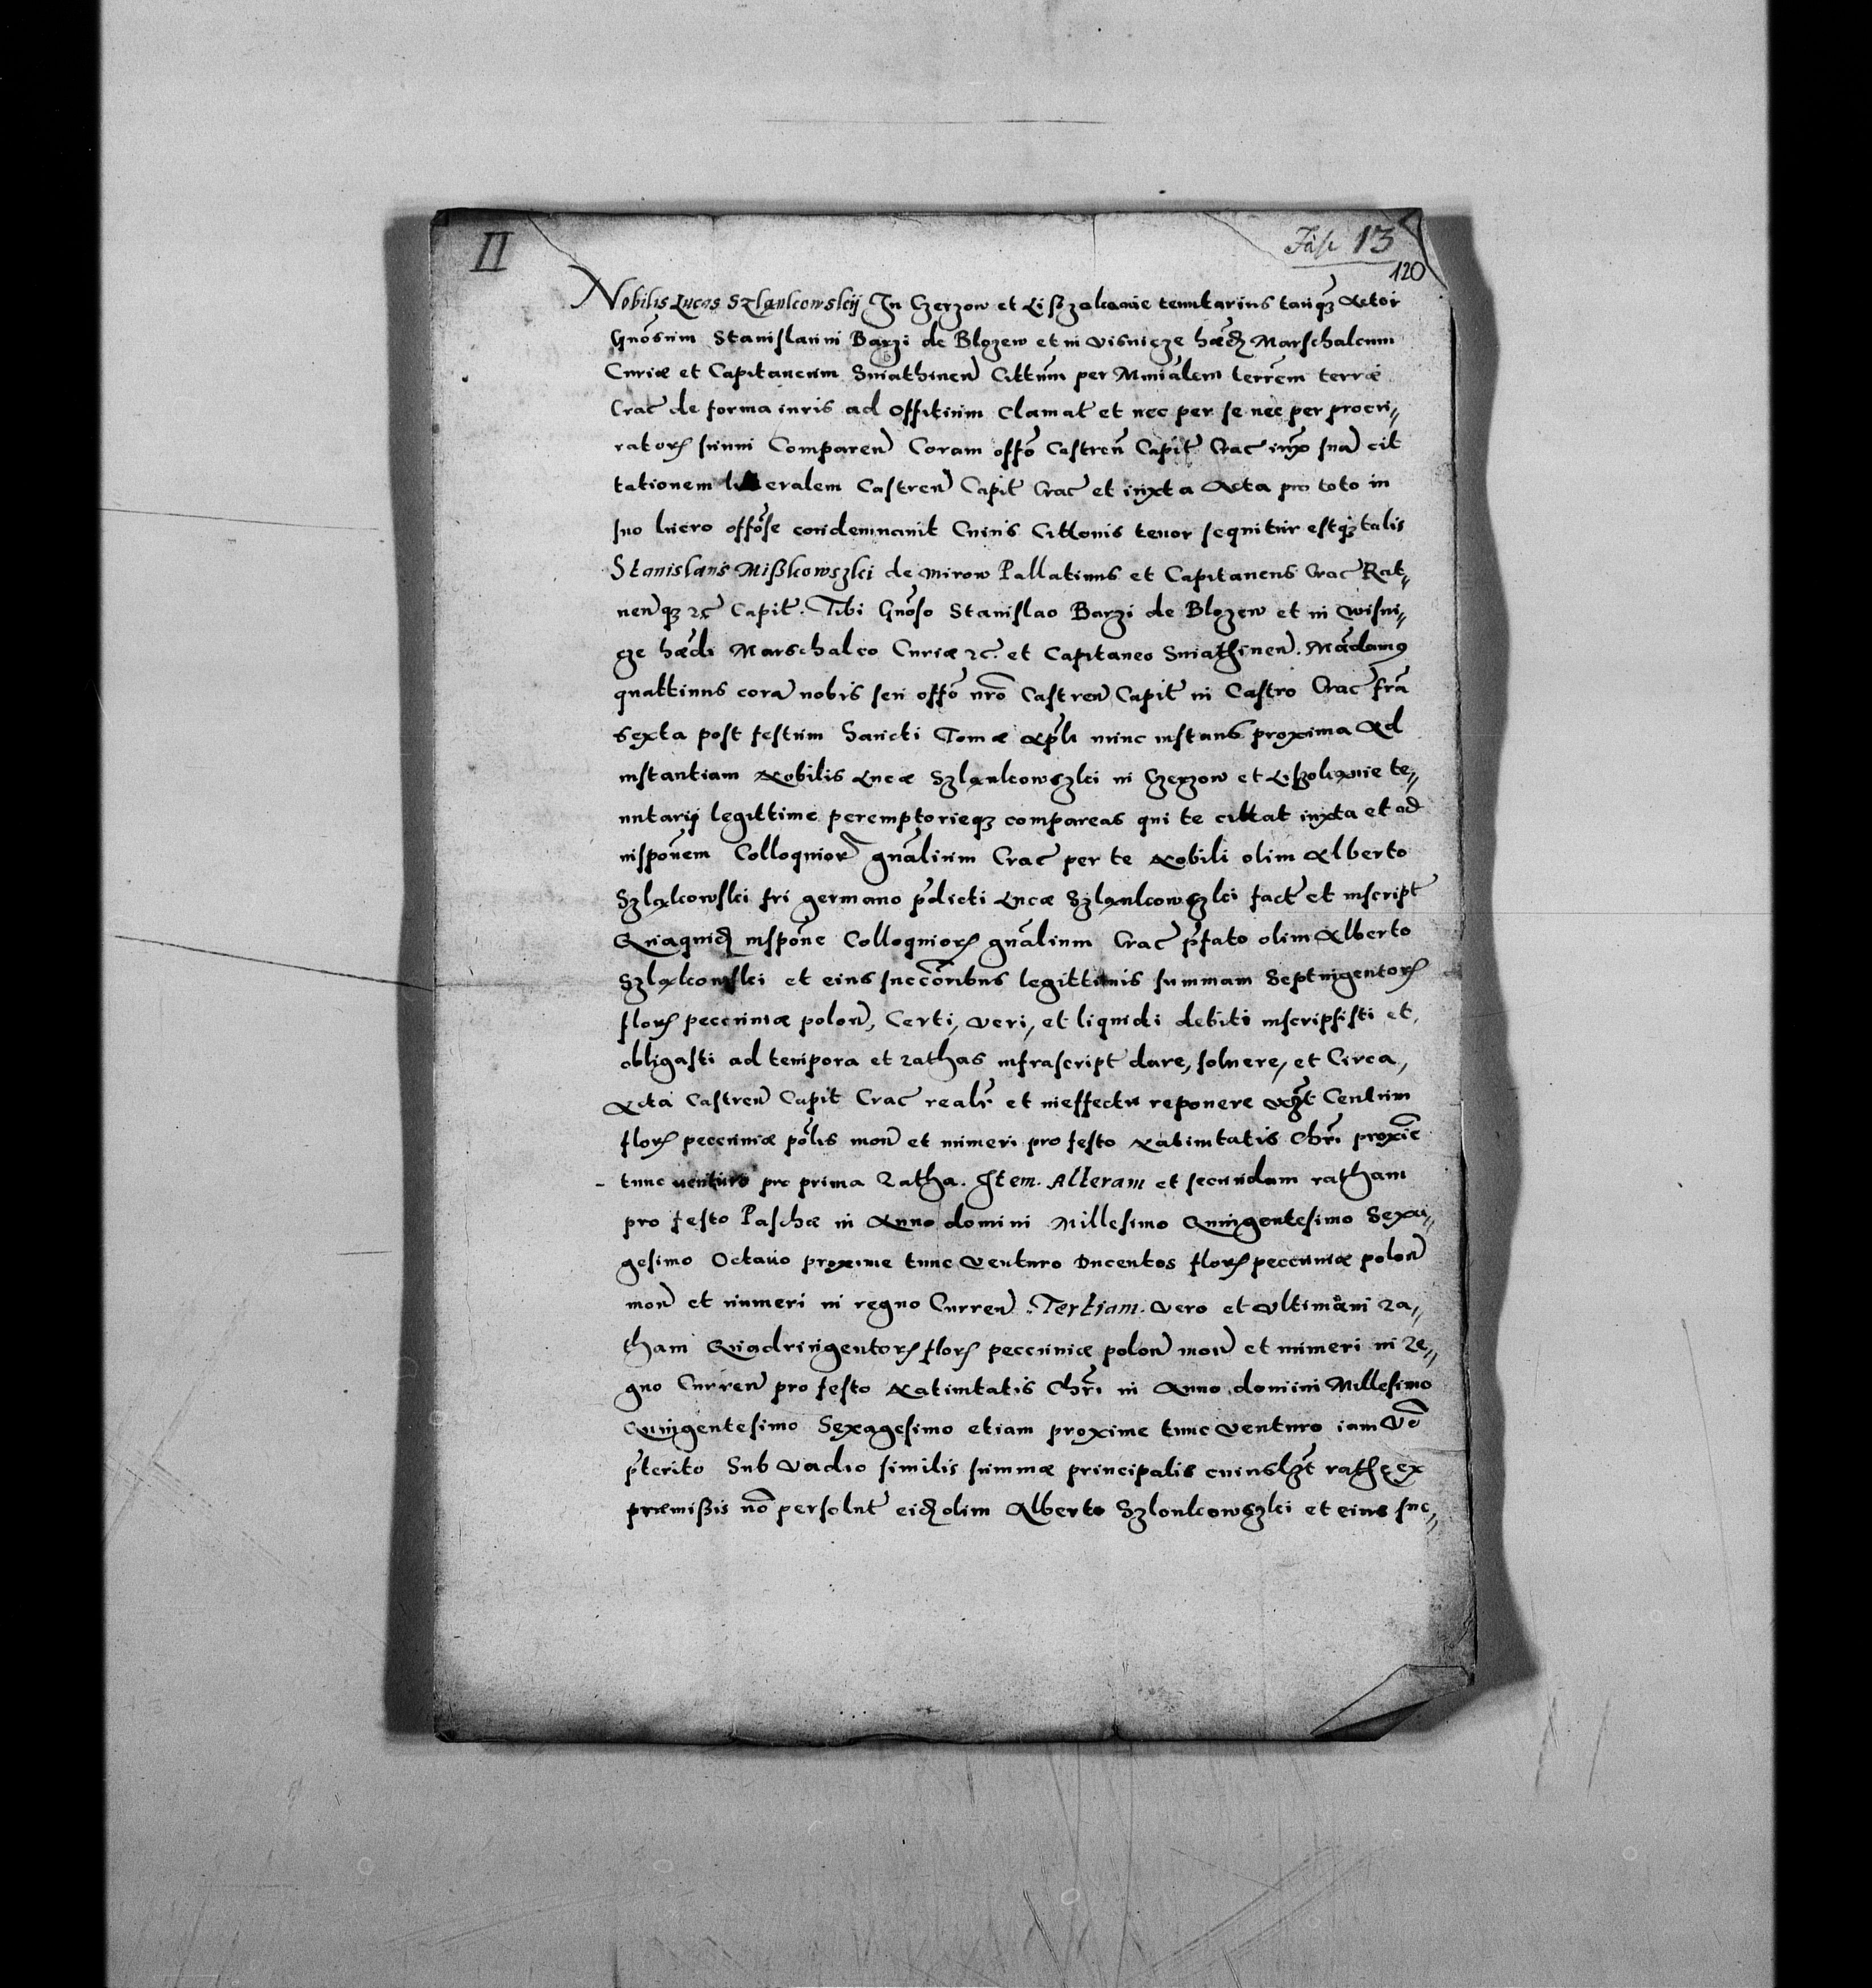 II
Fasc 13
120
Nobilis Lucas Szlankowskij In Czerzow et Lisszokanie tenutarius tanq3 Actor
Gnõsum Stanislaum Barzi de Blozew et in Visnicze hæd Marschalcum
Curiæ et Capitaneum Sniathinen Cittum per Mnialem terrem terræ
Crac de forma iuris ad Offitium Clamat et nec per se nec per procu„
rator suum Comparen Coram offõ Castren Capit Crac iux sua cit
tationem literalem Castren Capit Crac et iuxta Acta pro toto in
suo lucro offõse condemnauit Cuius Cittonis tenor sequitur estq3 talis
Stanislaus Mißkowszki de Mirow Pallatinus et Capitaneus Crac Rat„
nenq3 2c Capit. Tibi Gnõso Stanislao Barzi de Blozew et in Wisni„
cze hædi Marschalco Curiæ 2c. et Capitaneo Sniathinen. Mãdamus
quattinus corã nobis seu offõ nrõ Castren Capit in Castro Crac frã
sexta post festum Sancti Tomæ Apli nunc instans proxima Ad
instantiam Nobilis Lucæ Szlankowszki in Czerzow et Liszokanie te„
nutarij legittime peremptorieq3 compareas qui te cittat iuxta et ad
insponem Colloquior gnãlium Crac per te Nobili olim Alberto
Szlakowski fri germano pdicti Lucæ Szlankowszki fact et inscript
Quaquid inspone Colloquior gnãlium Crac pfato olim Alberto
Szlakowski et eius succoribus legittimis summam Septuigentor
flor peccuniæ polon, Certi, veri, et liquidi debiti inscripsisti et,
obligasti ad tempora et rathas infrascript dare, soluere, et Circa,
Acta Castren Capit Crac realr et in effectu reponere vczt Centum
flor peccuniæ polis mon et numeri pro festo Natiuitatis Chri proxie
tunc venturo pro prima Ratha. Item. Alteram et secundam ratham
pro festo Paschæ in Anno domini Millesimo Quingentesimo Sexa„
gesimo Octauo proxime tunc Venturo Ducentos flor peccuniæ polon
mon et numeri in regno Curren. Tertiam. vero et Vltimam Ra„
tham Quadringentor flor peccuniæ polon mon et numeri in Re„
gno Curren pro festo Natiuitatis Chri in Anno domini Millesimo
Quingentesimo Sexagesimo etiam proxime tunc Venturo iam Vo
pterito Sub Vadio similis summæ principalis cuiuslzt rathę ex
præmißis nõ persolut eid olim Alberto Szlonkowszki et eius suc„